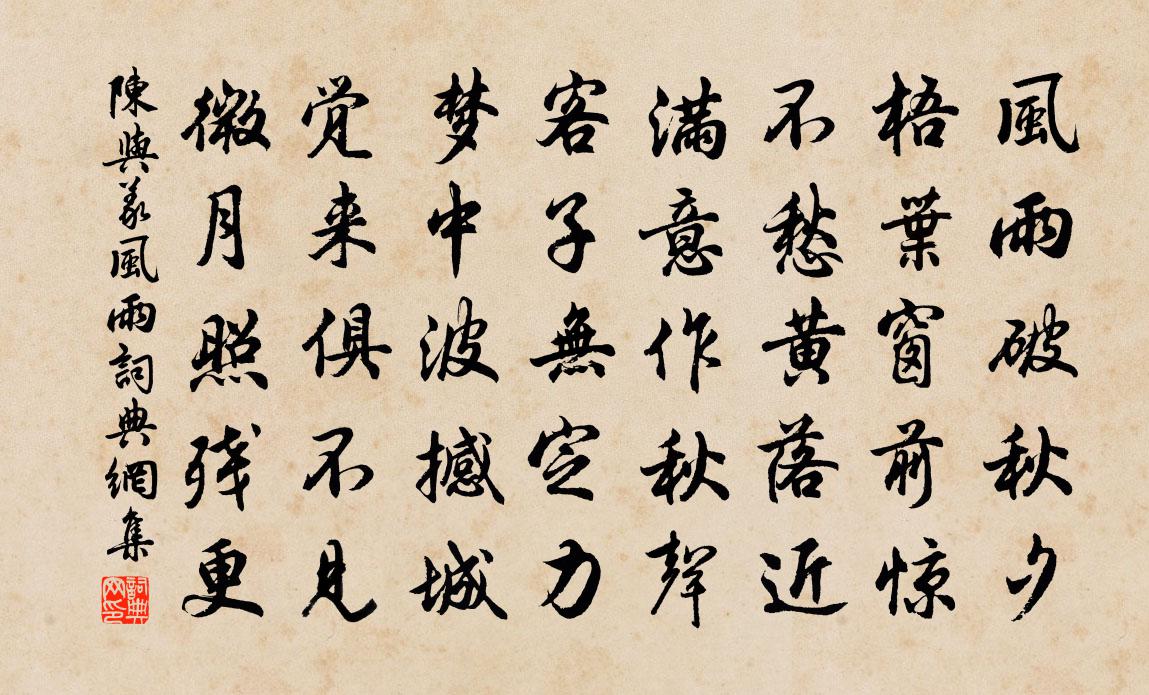 風雨破秋夕
梧葉窗前惊
不愁黄落近
满意作秋聲
客子無定力
梦中波撼城
觉来俱不見
微月照残更
陳與義風雨詞典網集
詞典网印